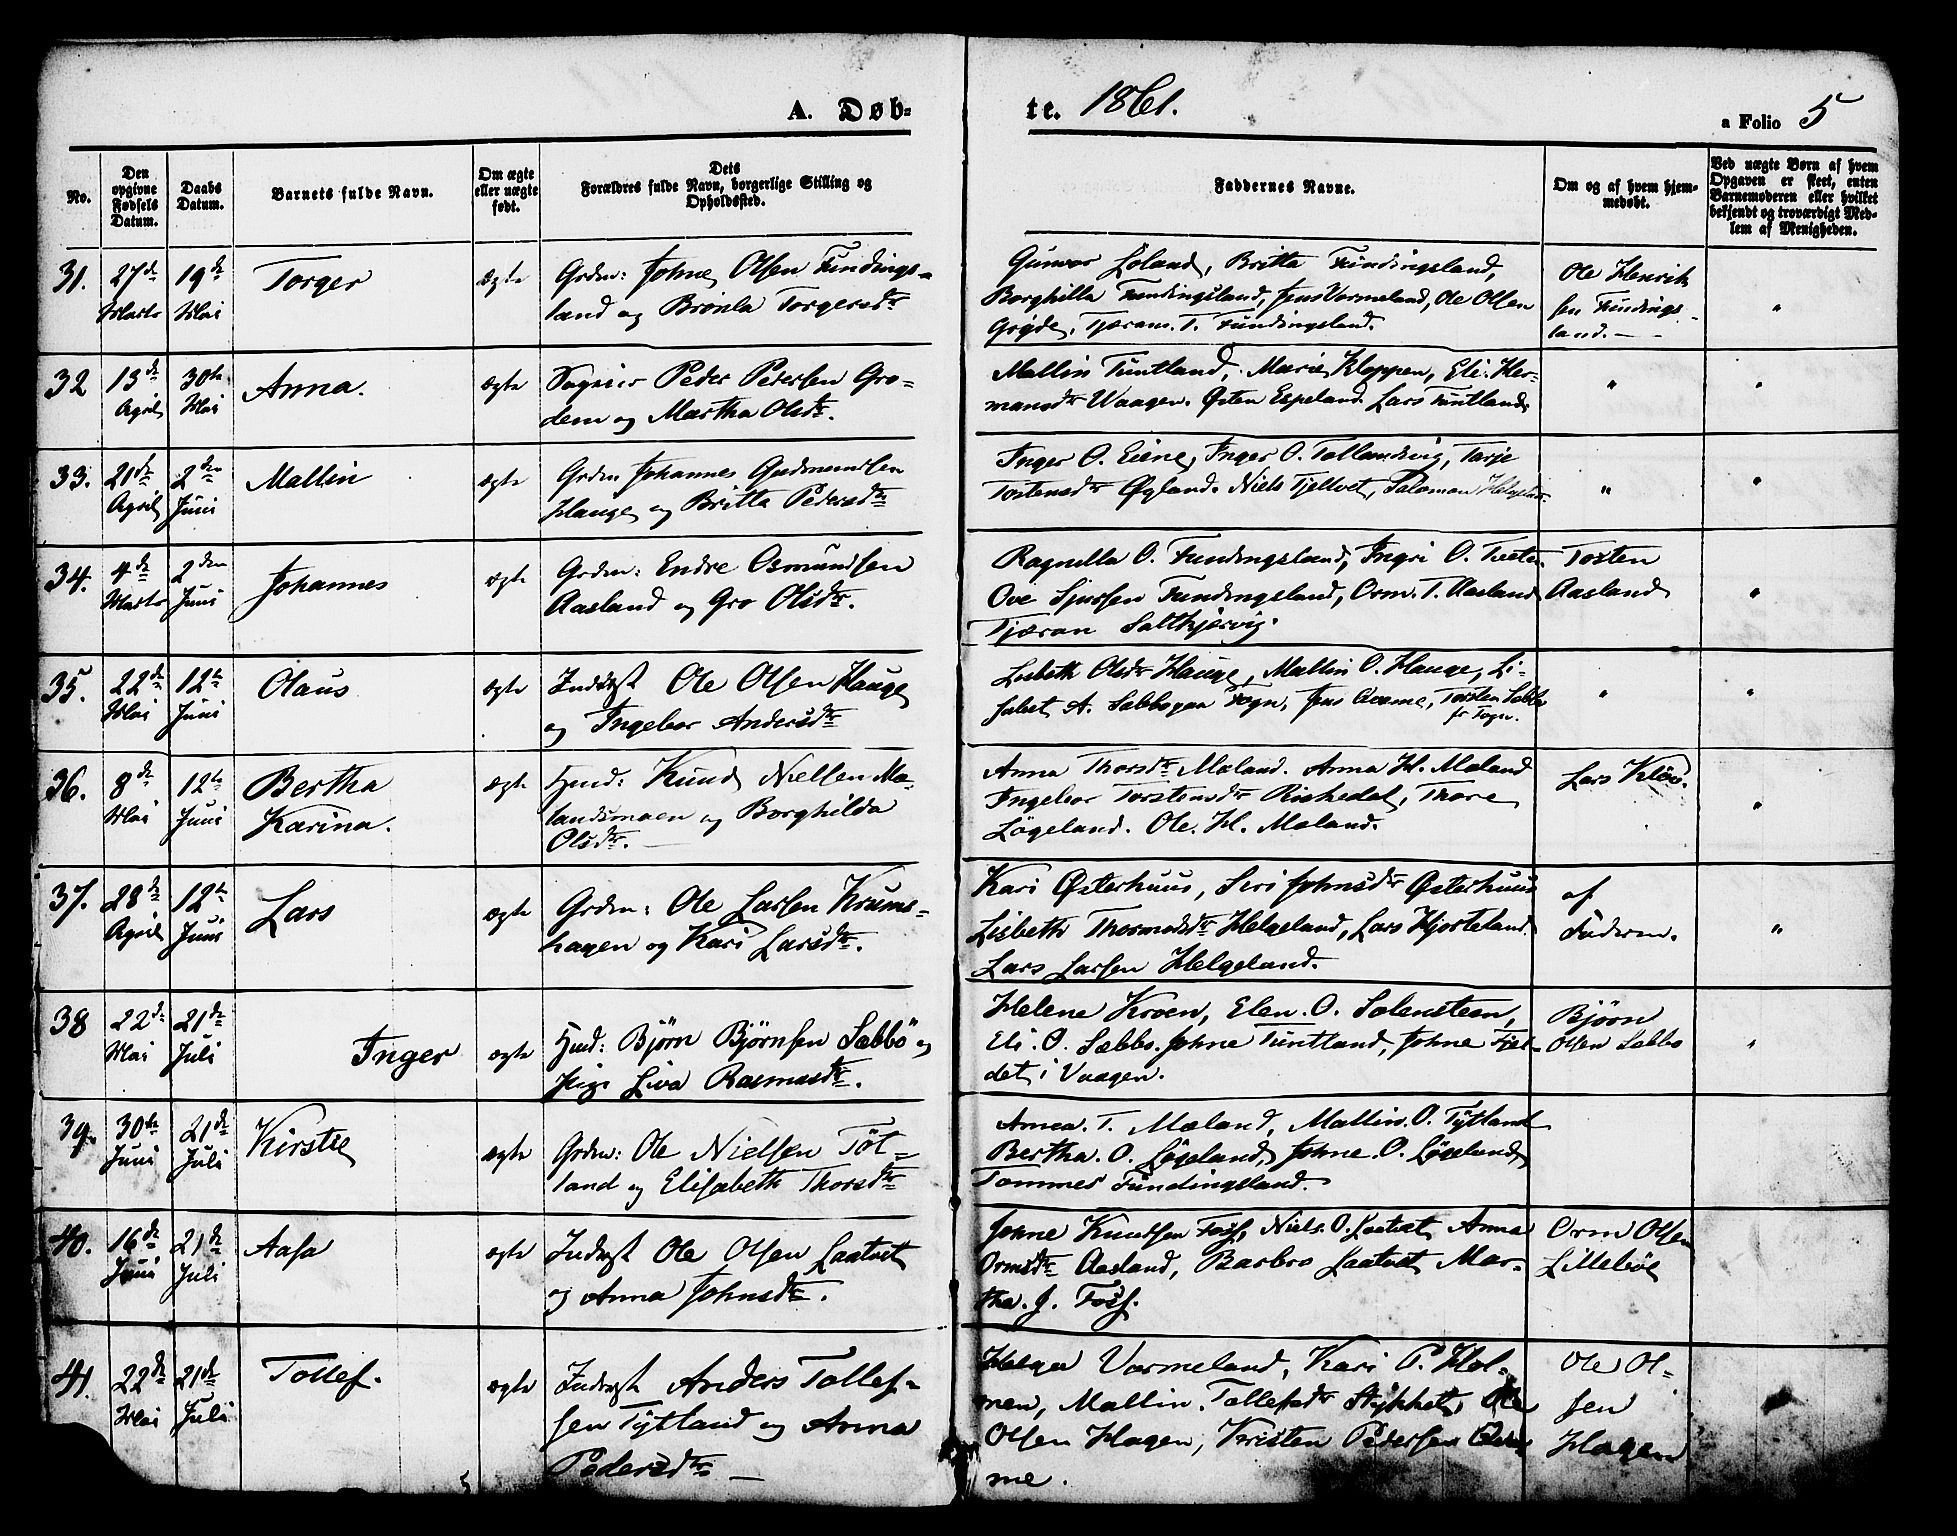 A. Døb-
te. 1861.
a Folio 5
No.
Den opgivne Fødsels Datum.
Daabs Datum.
Barnets fulde Navn.
Om ægte eller uægte født.
Dets Forældres fulde Navn, borgerlige Stilling og Opholdssted.
Faddernes Navne.
Om og af hvem hjemmedøbt.
Ved uægte Børn af hvem Opgaven er skeet, enten Barnemoderen eller hvilket bekjendt og troværdigt Medlem af Menigheden.
31. 27de Marts 19de Mai Torger ægte
Grdm: Johne Olsen Fundings-
land og Brönla Torgersdtr
Gunvor Loland, Britta Fundingsland,
Borghilla Fundingsland, Jens Vormeland, Ole Olsen
Grøde, Tjæran. T. Fundingsland.
Ole Henrik
sen Fundings-
land. -
"
32 13de April 30te Mai Anna. ægte
Peder Pedersen Gro-
dem og Martha Olsdtr.
Mallin Tuntland, Marie Kloppen, Eli Her-
mansdtr Waagen. Østen Espeland Lars Tuntland
"
"
33. 21de April 2den Juni Mallin ægte
Grdm Johannes Gudmundsen
Hauge og Britta Pedersdtr
Inger O. Eiene, Inger O. Tollandsvig, Tarje
Tostensdtr Øgland. Niels Tjeltvet, Salomon
"
"
34. 4de Marts 2den Juni Johannes ægte
Grdm: Endre Osmundsen
Aasland og Gro Olsdtr.
Ragnilla O. Fundingsland, Ingri O. Tveten
Ove Sjursen Fundingsland, Orm. T. Aasland
Tjæran Saltkjærvig.
Tosten
Aasland
"
35. 22de Mai 12te Juni Olaus ægte
Inderst Ole Olsen Hauge
og Ingebor Andersdtr
Lisbeth Olsdtr Hauge, Mallin O. Hauge, Li-
sabet A. Sabbo paa Fogn, Jens Averme, Torsten Sabbo
fr Fogn.
"
"
36. 8de Mai 12te Juni Bertha
Karina. ægte
Hmd: Knud Nielsen Mæ-
landsmoen og Borghilda
Olsdtr. -
Anna Thorsdtr Mæland. Anna H. Mæland
Ingebor Torstensdtr Riskedal, Thore
Løgeland. Ole. H. Mæland.
Lars Kløv.
"
37. 28de April 12te Juni Lars ægte
Grdm: Ole Larsen Krums-
hagen og Kari Larsdtr.
Kari Østerhuus, Siri Johnsdtr Østerhuus
Lisbeth Thormodsdtr Helgeland, Lars Hjorteland.
Lars Larsen Helgeland.
af
Faderen.
"
38 22de Mai 21de Juli Inger ægte
Hmd: Bjørn Bjørnsen Sabbö og
Pige Liva Rasmusdtr.
Helene Kroen, Elen. O. Solensteen,
Eli. O. Sæbbo. Johne Tuntland, Johne Fjel-
det i Vaagen.
Bjørn
Olsen Sabbo
"
39. 30te Juni 21de Juli Kirstie ægte
Grdm: Ole Nielsen Töt-
land og Elisabeth Thorsdtr
Anna. T. Mæland, Mallin. O. Tytland
Bertha. O. Løgeland, Johne. O. Løgeland,
Tommes Fundingsland.
40. 16de Juni 21de Juli Aasa ægte
Inderst Ole Olsen Laatvet
og Anna Johnsdtr.
Johne Knudsen Foss, Niels. O. Laatvet, Anna
Ormsdtr Aasland, Barbro Laatvet, Mar-
tha. J. Foss.
Orm Olsen
Lillebøe
41. 22de Mai 21de Juli Tollef. ægte
Inderst Anders Tollef-
sen Tytland og Anna
Pedersdtr -
Helga Vormeland, Kari P. Hol-
men, Mallin Tollefsdtr Stykket, Ole
Olsen Hagen, Kristen Pedersen
me.
Ole Ol-
sen
Hagen